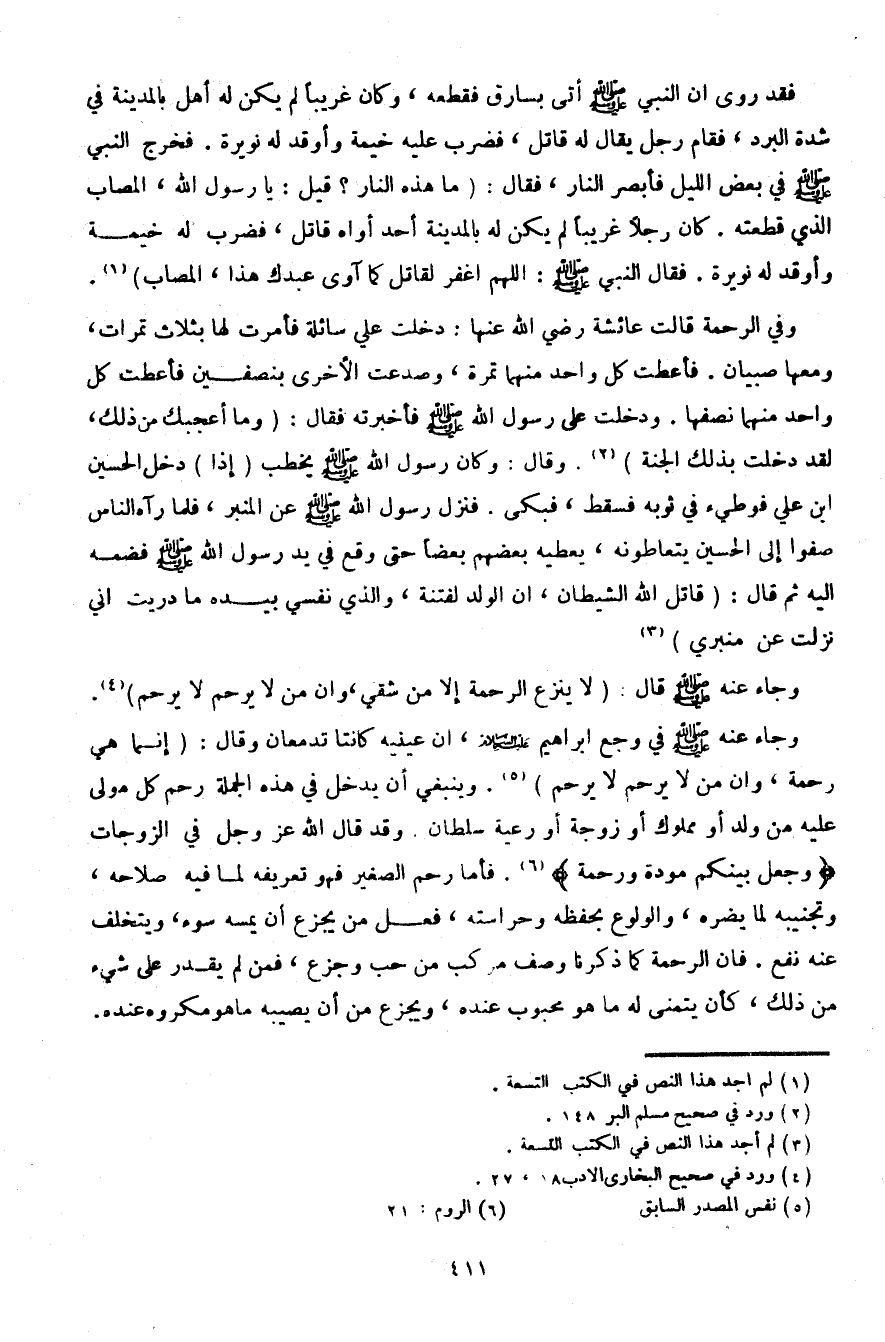 فقد روى ان النبي ﷺ أتى بسارق فقطعه ، وكان غريباً لم يكن له أهل بالمدينة في
شدة البرد ، فقام رجل يقال له قاتل ، فضرب عليه خيمة وأوقد له نويرة . فخرج النبي
ﷺ في بعض الليل فأبصر النار ، فقال : ( ما هذه النار ؟ قيل : يا رسول الله ، المصاب
الذي قطعته . كان رجلاً غريباً لم يكن له بالمدينة أحد أواه قاتل ، فضرب له خيمة
وأوقد له نويرة . فقال النبي ﷺ : اللهم اغفر لقاتل كما آوى عبدك هذا ، المصاب) (١) .
وفي الرحمة قالت عائشة رضي الله عنها : دخلت علي سائلة فأمرت لها بثلاث تمرات ،
ومعها صبيان . فأعطت كل واحد منهما تمرة ، وصدعت الأخرى بنصفين فأعطت كل
واحد منهما نصفها . ودخلت على رسول الله ﷺ فأخبرته فقال : ( وما أعجبك من ذلك ،
لقد دخلت بذلك الجنة ) (٢) . وقال : وكان رسول الله ﷺ يخطب ( إذا ) دخل الحسين
ابن علي فوطيء في ثوبه فسقط ، فبكى . فنزل رسول الله ﷺ عن المنبر ، فلما رآه الناس
صفوا إلى الحسين يتعاطونه ، يعطيه بعضهم بعضاً حتى وقع في يد رسول الله ﷺ فضمه
اليه ثم قال : ( قاتل الله الشيطان ، ان الولد لفتنة ، والذي نفسي بيده ما دريت اني
نزلت عن منبري ) (٣)
وجاء عنه ﷺ قال : ( لا ينزع الرحمة إلا من شقي ، وان من لا يرحم لا يرحم) (٤) .
وجاء عنه ﷺ في وجع ابراهيم عليه السلام ، ان عينيه كانتا تدمعان وقال : ( إنما هي
رحمة ، وان من لا يرحم لا يرحم ) (٥) . وينبغي أن يدخل في هذه الجملة رحم كل مولى
عليه من ولد أو مملوك أو زوجة أو رعية سلطان . وقد قال الله عز وجل في الزوجات
﴿ وجعل بينكم مودة ورحمة ﴾ (٦) . فأما رحم الصغير فهو تعريفه لما فيه صلاحه ،
وتجنيبه لما يضره ، والولوع بحفظه وحراسته ، فعل من يجزع أن يمسه سوء ، ويتخلف
عنه نفع . فان الرحمة كما ذكرنا وصف مركب من حب وجزع ، فمن لم يقدر على شيء
من ذلك ، كأن يتمنى له ما هو محبوب عنده ، ويجزع من أن يصيبه ماهو مكروه عنده .
(١) لم اجد هذا النص في الكتب التسعة .
(٢) ورد في صحيح مسلم البر ١٤٨ .
(٣) لم أجد هذا النص في الكتب التسعة .
(٤) ورد في صحيح البخارى الادب ١٨ ، ٢٧ .
(٥) نفس المصدر السابق (٦) الروم : ٢١
٤١١